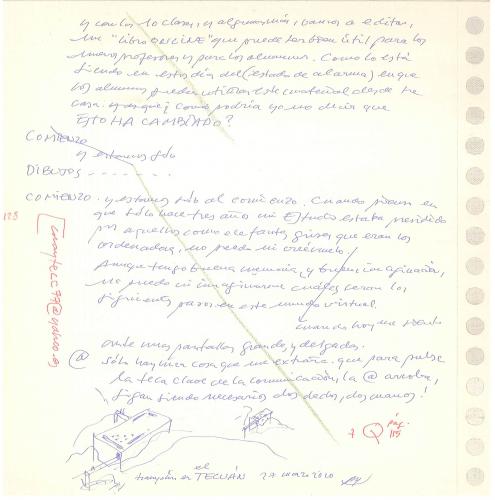 y con los 10 clases, y algunas más, vamos a editar,
un "libro ONLINE" que puede ser bien útil para los
nuevos profesores y para los alumnos. Como lo está
siendo en estos días del (estado de alarma) en que
los alumnos pueden utilizar este material desde su
casa. y es que ¿cómo podría yo no decir que
ESTO HA CAMBIADO?
COMIENZO
y estamos sólo
DIBUJOS - - - - - - -
COMIENZO. y estamos sólo al comienzo. Cuando pienso en
que sólo hace tres años mi Estudio estaba presidido
por aquellos como elefantes grises que eran los
ordenadores, no puedo ni creérmelo.
Aunque tengo buena memoria, y buena imaginación,
no puedo ni imaginarme cuáles serán los
siguientes pasos en este mundo virtual.
cuando hoy me siento
ante unas pantallas grandes y delgadas.
@ Sólo hay una cosa que me extraña. que para pulsar
la tecla clave de la comunicación, la @ arroba,
sigan siendo necesarios dos dedos, dos manos!
128
pág.
115
el
TECUÁN 27 marzo 2020